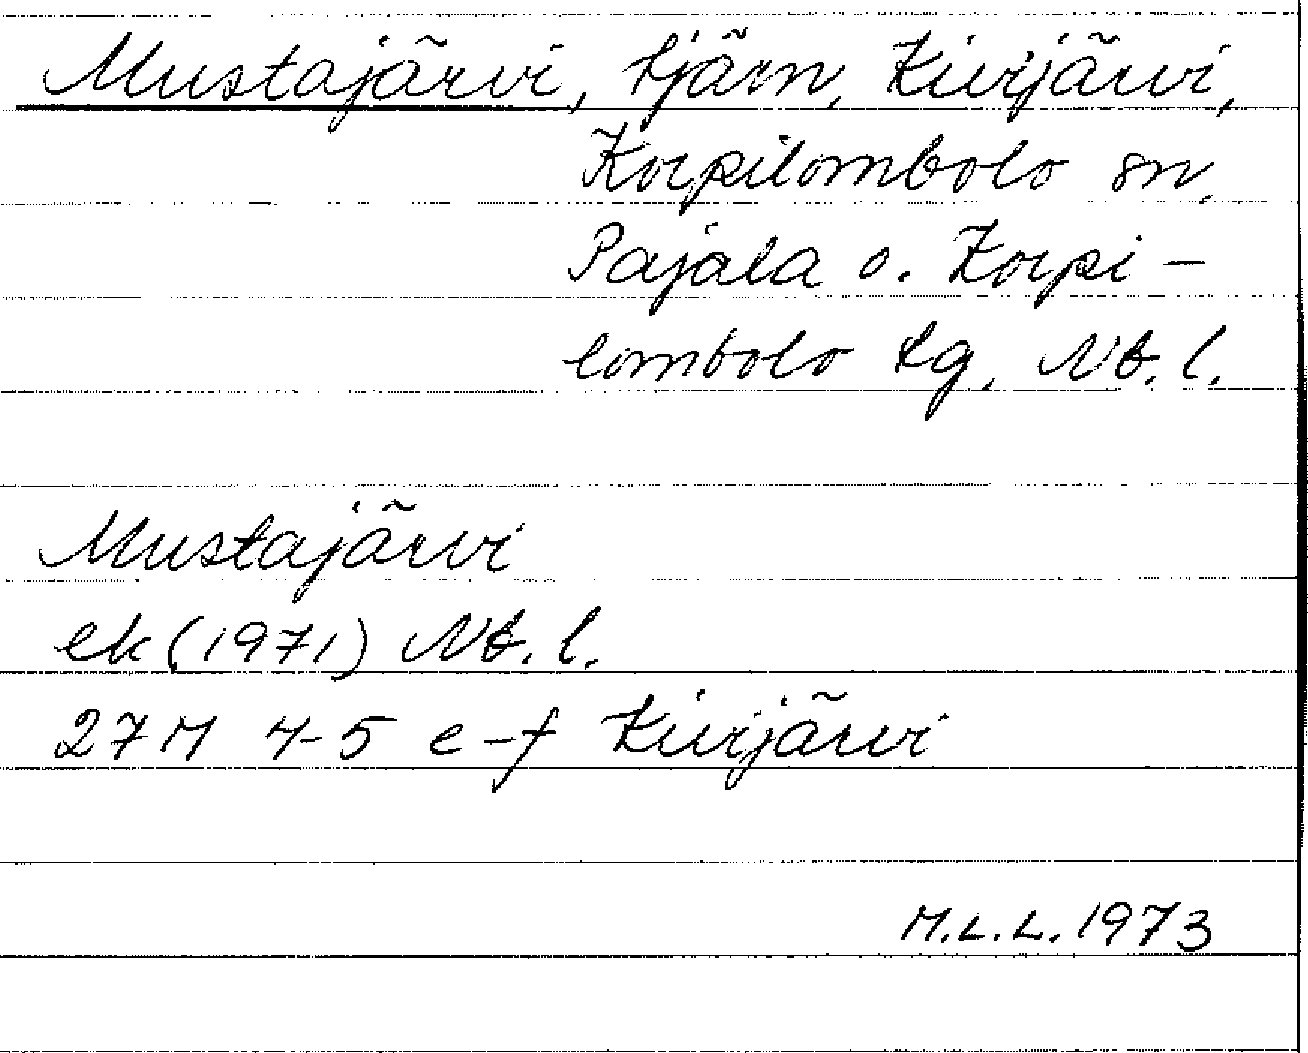 Mustajärvi, tjärn, Kivijärvi,
Korpilombolo sn,
Pajala o. Korpi-
lombolo tg, Nb. l.
Mustajärvi
ek (1971) Nb. l.
27M 4-5 e-f Kivijärvi
M.L.L. 1973